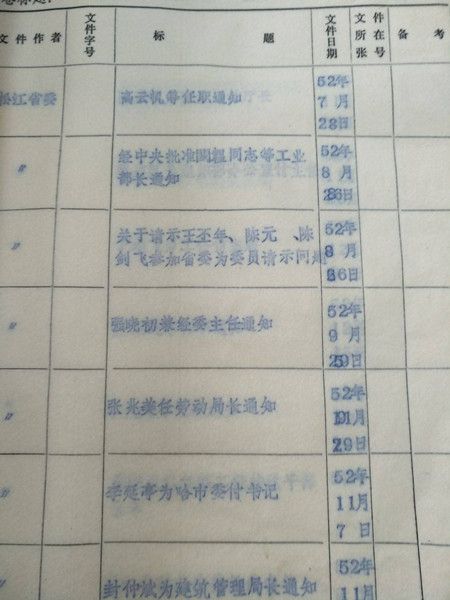 文件作者 文件字号 标 题 文件日期 文件所在张号 备 考
松江省委 高云帆等任职通知 52年
7 月
28日
〃 经中央批准闵 同志等工业 52年
部长通知 8 月
26日
〃 关于请示王丕年、陈元 、陈 52年
剑飞参加省委为委员请示问题 8 月
26日
〃 强晓初兼经委主任通知 52年
9 月
29日
〃 张兆美任劳动局长通知 52年
月
29日
〃 李延亭为哈市委付书记 52年
11月
7 日
〃 封仲斌为建筑管理局长通知 52年
11月